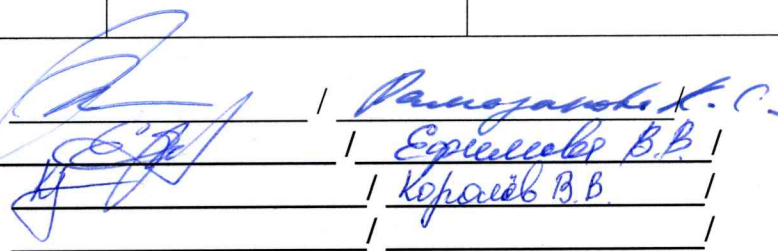 / Рамазанова Х. С. /
/ Ефимова В.В. /
/ Королёв В.В. /
/ /